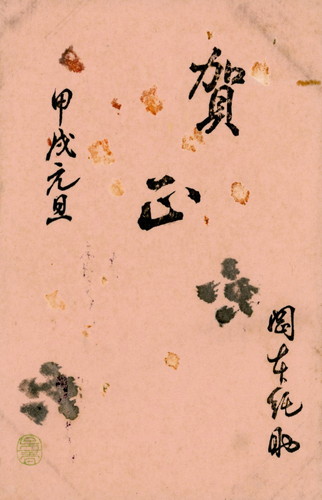 賀正
甲戌元旦
岡本純助